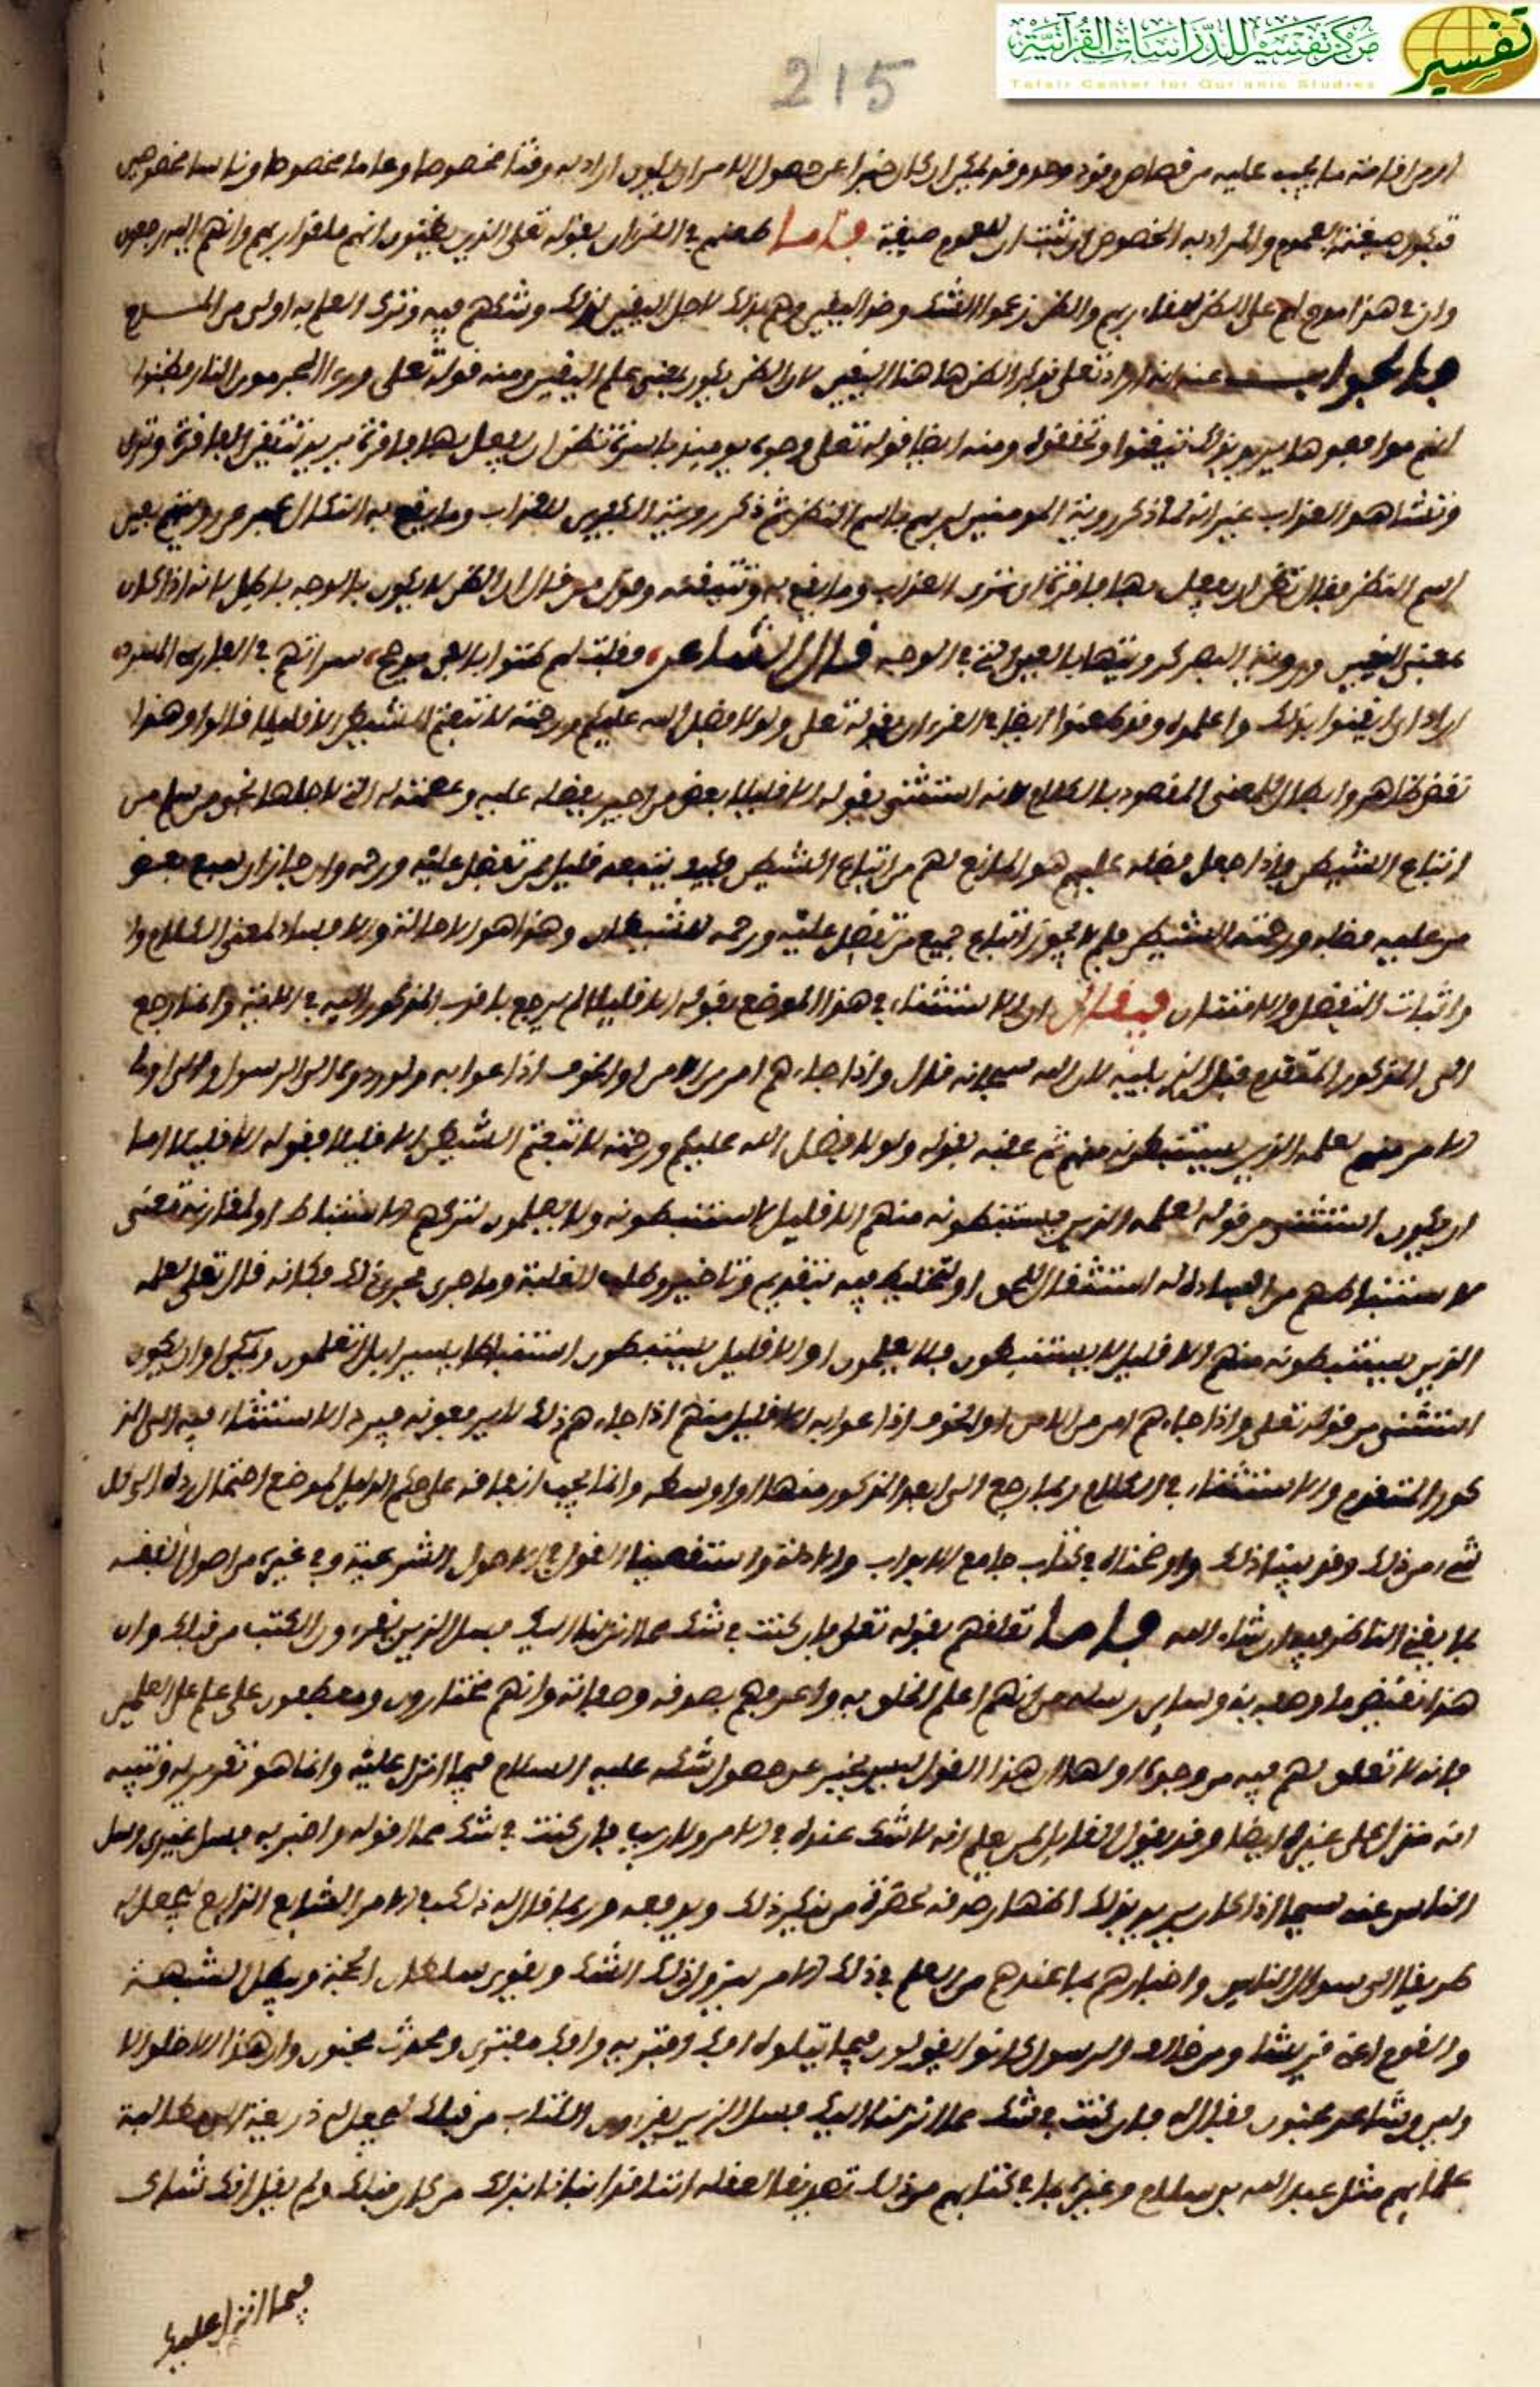 مركز تفسير للدراسات القرآنية
Tafsir Center for Qur'anic Studies
تفسير
215
او من اقامة ما يجب عليه من قصاص وقود وحد وقد يمكن ان كان خبرا عن حصول الامر ان يكون اراد به وقتا مخصوصا وعاما مخصوصا وناسا مخصوصين
فيكون صيغته العموم والمراد به الخصوص ان ثبت ان للعموم صيغة فاما طعنهم في القران بقوله تعلى الذين يظنون انهم ملقوا ربهم وانهم اليه رجعون
وان في هذا مدح لهم على الظن للقاء ربهم والظن زعموا الشك وضد اليقين
فالجواب عنه انه اراد تعلى بذكر الظن هاهنا اليقين لان الظن يكون بمعنى علم اليقين ومنه قوله تعلى ورءا المجرمون النار فظنوا
انهم مواقعوها يريد بذلك تيقنوا وتحققوه ومنه ايضا قوله تعلى وجوه يومئذ باسرة تظن ان يفعل بها فاقرة يريد تتيقن الفاقرة وترى
وتشاهد العذاب غير انه لما ذكر روية المومنين لربهم باسم الظن ثم ذكر روية الكفرين للعذاب وما يقع به النكال عبر عن رويتهم بغير
اسم الظن فقال تظن ان يفعل بها فاقرة اي ترى العذاب وما يقع به وتتيقنه وقول من قال ان الظن لا يكون بالوجه باطل لانه اذا كان
بمعنى اليقين وروية البصر كرويتها بالعين التي في الوجه قال الشاعر فقلت لهم ظنوا بالفي مدجج سراتهم في الفارسي المسرد
اراد اي ايقنوا بذلك واعلموه وقد طعنوا ايضا في القرءان بقوله تعلى ولولا فضل الله عليكم ورحمته لاتبعتم الشيطن الا قليلا قالوا وهذا
نقض ظاهر وابطال للمعنى المقصود بالكلام لانه استثنى بقوله الا قليلا بعض من اخبر بفضله عليه وعصمته له التي لاجلها نجو من سلم من
اتباع الشيطن واذا جعل فضله عليهم هو المانع لهم من اتباع الشيطن فكيف يتبعه قليل ممن تفضل عليه ورحمه وان جاز ان يتبع بعض
من عليه فضله ورحمته الشيطن فلم لا يجوز اتباع جميع من تفضل عليه ورحمه للشيطان وهذا هو الاحالة والافساد لمعنى الكلام وا
واثبات التفضل والامتنان فيقال ان الاستثناء في هذا الموضع بقوله الا قليلا لم يرجع لاقرب المذكور اليه في اللغة وانما رجع
الى المذكور المتقدم قبل الذي يليه لان الله سبحانه قال واذا جاءهم امر من الامن او الخوف اذاعوا به ولو ردوه الى الرسول والى اولي
الامر منهم لعلمه الذين يستنبطونه منهم ثم عقبه بقوله ولولا فضل الله عليكم ورحمته لاتبعتم الشيطن الا قليلا فقوله الا قليلا اما
ان يكون استثنى من قوله لعلمه الذين يستنبطونه منهم الا قليلا لا يستنبطونه ولا يعلمون لتركهم الاستنباط او لمقارنة معنى
لاستنباطهم من الفساد له استثقال للحق او تخليط فيه بتقديم وتاخير وطلب للغلبة وما جرى مجرى ذلك فكانه قال تعلى لعلمه
الذين يستنبطونه منهم الا قليل لا يستنبطون فلا يعلمون او الا قليل يستنبطون استنباطا يسيرا بل لا يعلمون ويمكن ان يكون
استثنى من قوله تعلى واذا جاءهم امر من الامن او الخوف اذاعوا به الا قليل منهم اذا جاءهم ذلك لا يذيعونه فيرد الاستثناء فيه الى المذ
كور المتقدم والاستثناء في الكلام ربما رجع الى ابعد المذكور منها او اوسطه وانما يجب ايقافه على حكم الدليل لموضع احتمال رده الى كل
شيء من ذلك وقد بينا ذلك واوضحناه في كتاب جامع الابواب والادلة واستقصينا القول في الاصول الشرعية وفي غيره من اصول الفقه
بما يغني الناظر فيه ان شاء الله فاما تعلقهم بقوله تعلى فان كنت في شك مما انزلنا اليك فسل الذين يقرءون الكتب من قبلك وان
هذا نقيض ما وصف به وساير رسله من انهم اعلم الخلق به واعرفهم بصدقه وصفاته وانهم مختارون ومصطفون على علم على العلمين
فانه لا تعلق لهم فيه من وجوه اولها ان هذا القول ليس بخبر عن حصول شكه عليه السلام فيما انزل عليه وانما هو تقرير له وتنبيه
انه منزل على غيره ايضا وقد يقول القائل لمن يعلم انه لا شك عنده في الامر ولا ريب فان كنت في شك مما اقوله واخبر به فسل غيري وسل
الناس عنه سيما اذا كان يريد بذلك اظهار صدقه بحضرة من ينكر ذلك ويدفعه وربما قال له ذلك في الامر الشايع الذايع ليجعل له
طريقا الى سوال الناس واخبارهم بما عندهم من العلم في ذلك الامر ليزول ذلك الشك ويقوى سلطان الحجة ويبطل الشبهة
والقوم اعني قريشا ومن خالف الرسول كانوا يقولون فيما يتلوه افك افتريه وافك مفترى ومحدث مجنون وان هذا الا خلق الا
ولين وشاعر مجنون فقال له فان كنت في شك مما انزلنا اليك فسل الذين يقرءون الكتاب من قبلك ليجعل له ذريعة الى مطالبة
علمايهم مثل عبد الله بن سلام وغيره بما في كتابهم من ذلك تصديقا لقوله اننا قد انبانا بذلك من كان قبلك ولم يقل انك شاك
فيما انزل عليك